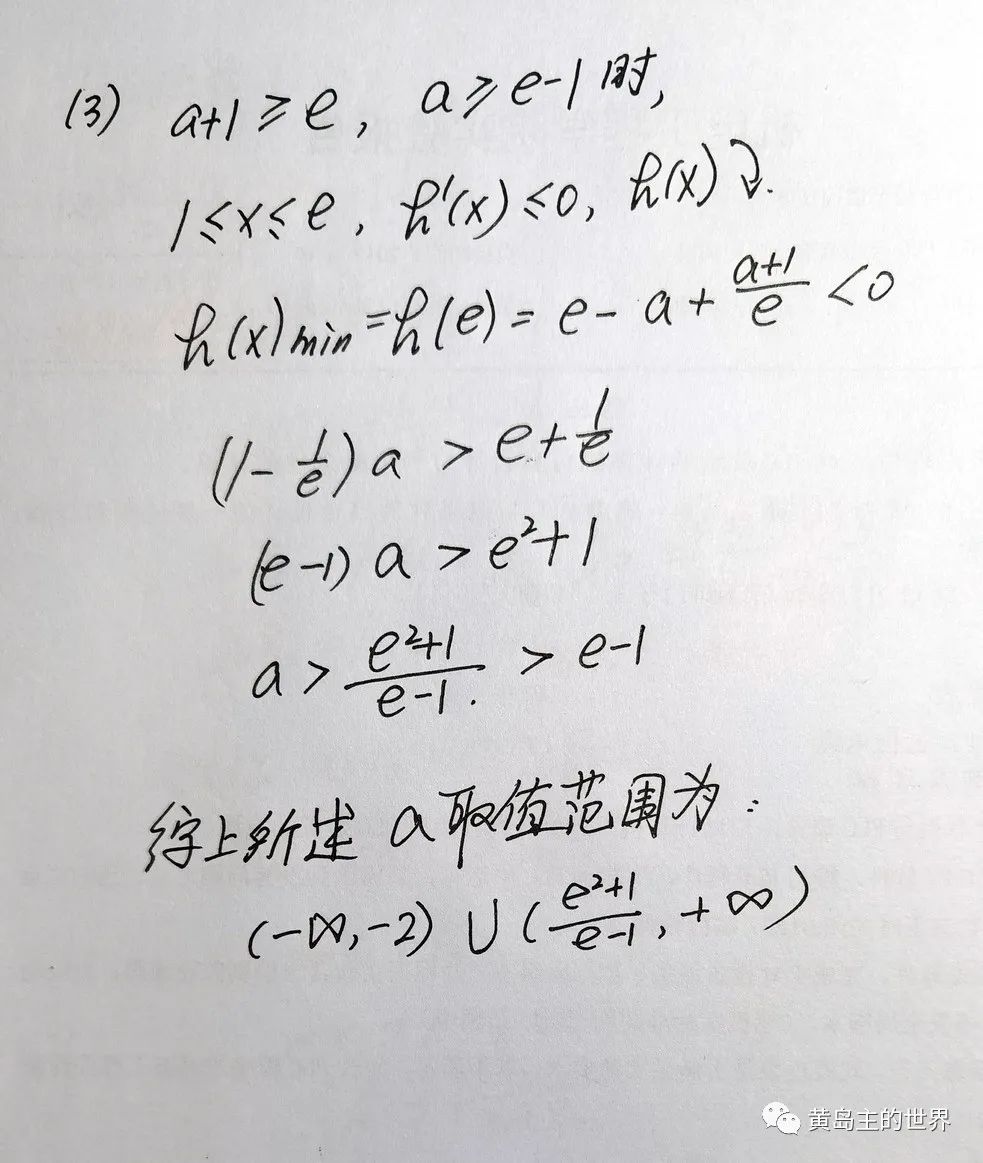 (3) a+1≥e, a≥e-1时,
1≤x≤e, h'(x)≤0, h(x)⤵.
h(x)min=h(e)=e-a+\frac{a+1}{e}<0
(1-\frac{1}{e})a>e+\frac{1}{e}
(e-1)a>e²+1
a>\frac{e²+1}{e-1.}>e-1
综上所述 a取值范围为:
(-∞,-2)∪(\frac{e²+1}{e-1},+∞)
黄岛主的世界